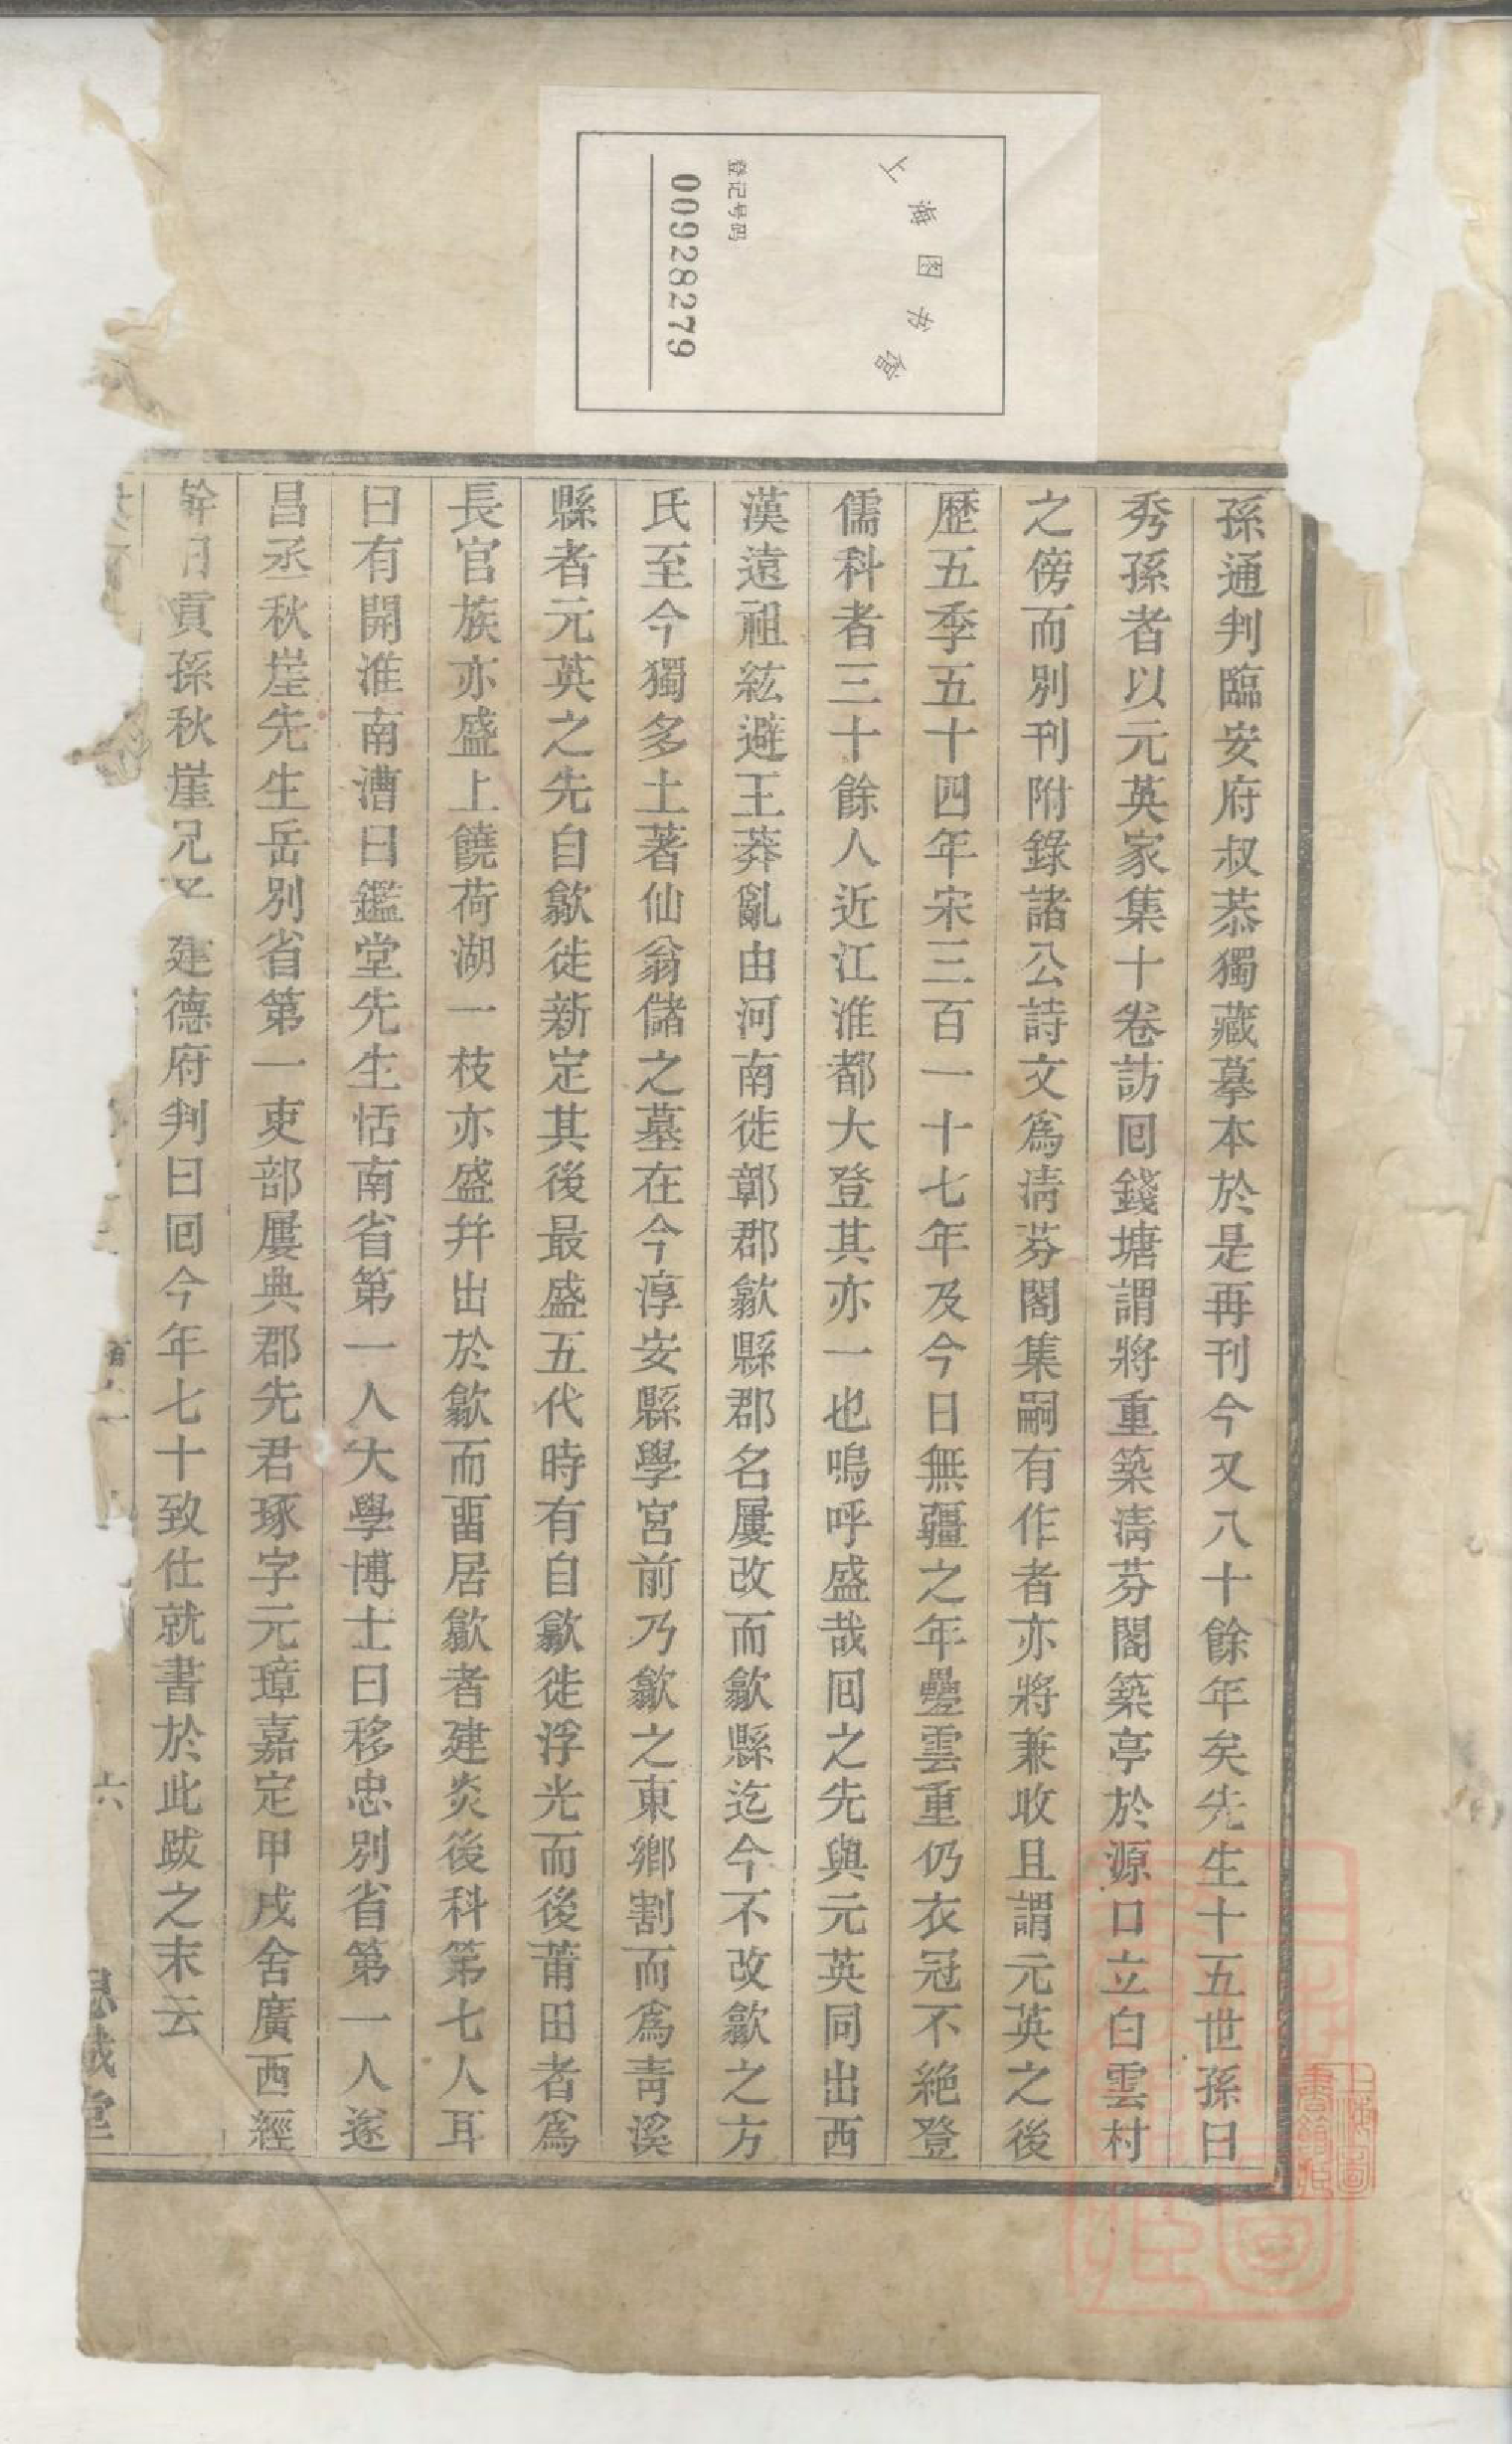 上海图书馆
登记号码
00928279
孫通判臨安府叔恭獨藏摹本於是再刊今又八十餘年矣先生十五世孫曰
秀孫者以元英家集十卷訪回錢塘謂將重築清芬閣築亭於源口立白雲村
之傍而別刊附錄諸公詩文爲清芬閣集嗣有作者亦將兼收且謂元英之後
歷五季五十四年宋三百一十七年及今日無疆之年疊雲重仍衣冠不絶登
儒科者三十餘人近江淮都大登其亦一也嗚呼盛哉回之先與元英同出西
漢遠祖紘避王莽亂由河南徙鄣郡歙縣郡名屢改而歙縣迄今不改歙之方
氏至今獨多土著仙翁儲之墓在今淳安縣學宮前乃歙之東鄉割而爲青溪
縣者元英之先自歙徙新定其後最盛五代時有自歙徙浮光而後莆田者爲
長官族亦盛上饒荷湖一枝亦盛幷出於歙而畱居歙者建炎後科第七人耳
曰有開淮南漕曰鑑堂先生恬南省第一人大學博士曰移忠別省第一人遂
昌丞秋崖先生岳別省第一吏部屢典郡先君琢字元璋嘉定甲戌舍廣西經
幹曰貢孫秋崖兄 建德府判曰回今年七十致仕就書於此跋之末云
六
堂
上海圖書館藏